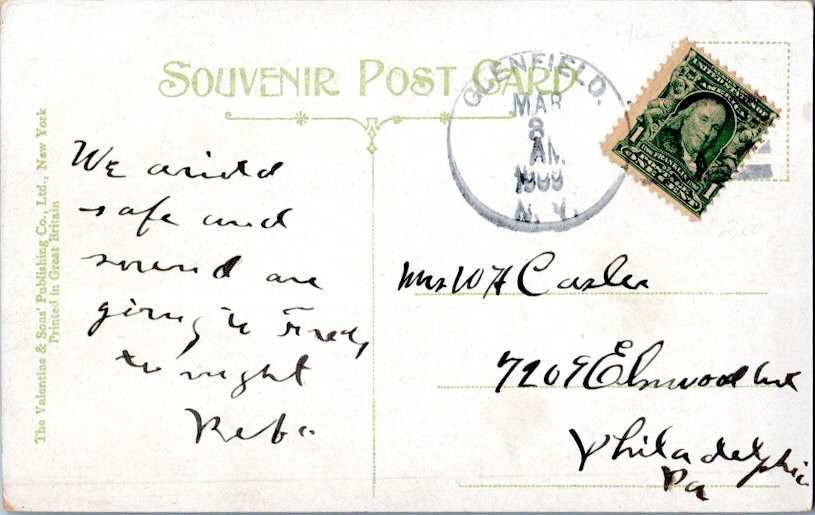 SOUVENIR POST CARD
GLENFIELD.
MAR
8
AM
1909
N.Y.
1 ONE CENT 1
The Valentine & Sons' Publishing Co., Ltd., New York
Printed in Great Britain
We arived
safe and
sound are
going to
to night
Reba
Mrs W H Casler
Elmwood Ave
Philadelphia
Pa